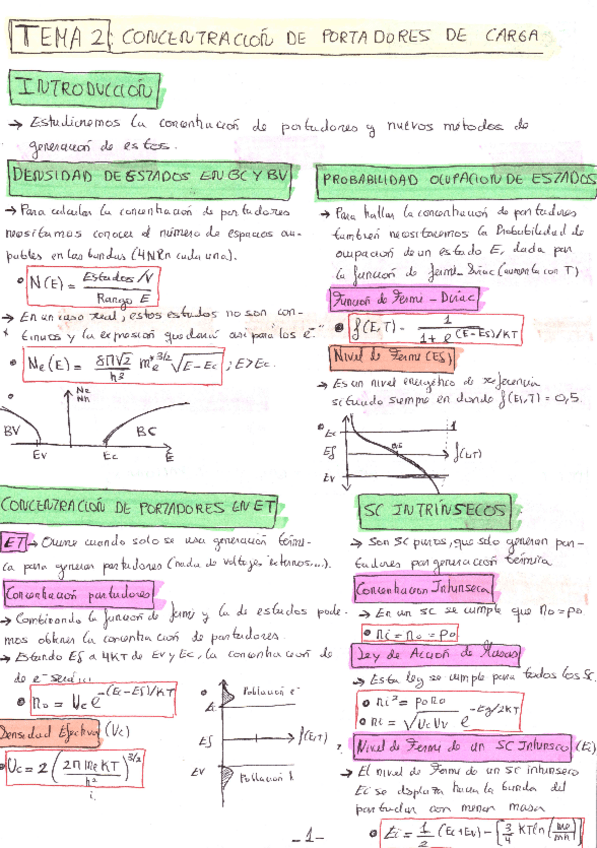 TEMA 2: CONCENTRACIÓN DE PORTADORES DE CARGA
INTRODUCCIÓN
→ Estudiaremos la concentración de portadores y nuevos métodos de
generación de estos.
DENSIDAD DE ESTADOS EN BC Y BV
→ Para calcular la concentración de portadores
necesitamos conocer el número de espacios ocu-
pables en las bandas (4N en cada una).
• N(E) = Estados/V / Rango E
→ En un caso real, estos estados no son con-
tinuos y la expresión quedaría así para los e⁻
• Ne(E) = 8π√2 / h³ me^3/2 √E-Ec ; E > Ec.
Ne
Nh
BV
BC
Ev
Ec
E
PROBABILIDAD OCUPACION DE ESTADOS
→ Para hallar la concentración de portadores
también necesitaremos la Probabilidad de
ocupación de un estado E, dada por
la función de Fermi-Dirac (aumenta con T)
Función de Fermi-Dirac
• f(E,T) = 1 / 1 + e^(E-Ef)/KT
Nivel de Fermi (Ef)
→ Es un nivel energético de referencia
situado siempre en donde f(E,T) = 0,5.
Ec
1
Ef
0,5
f(E,T)
Ev
CONCENTRACIÓN DE PORTADORES EN ET
ET → Ocurre cuando solo se usa generación térmi-
ca para generar portadores (nada de voltajes externos...).
Concentración portadores
→ Combinando la función de Fermi y la de estados pode-
mos obtener la concentración de portadores.
→ Estando Ef a 4KT de Ev y Ec, la concentración de
de e⁻ será:
• n₀ = Uc e^-(Ec-Ef)/KT
Densidad Efectiva (Uc)
• Uc = 2 (2π me KT / h²)^3/2
Población e⁻
Ec
Ef
f(E,T)
Ev
Población h
SC INTRÍNSECOS
→ Son SC puros, que solo generan por-
tadores por generación térmica
Concentracion Intrínseca
→ En un SC se cumple que n₀ = p₀
• ni = n₀ = p₀
Ley de Acción de Masas
→ Esta ley se cumple para todos los SC.
• ni² = p₀n₀
• ni = √UcUv e^-Eg/2KT
Nivel de Fermi de un SC Intrínseco (Ei)
→ El nivel de Fermi de un SC intrínseco
Ei se desplaza hacia la banda del
portador con menor masa
• Ei = 1/2 (Ec+Ev) - [3/4 KT ln (me/mh)]
-1-